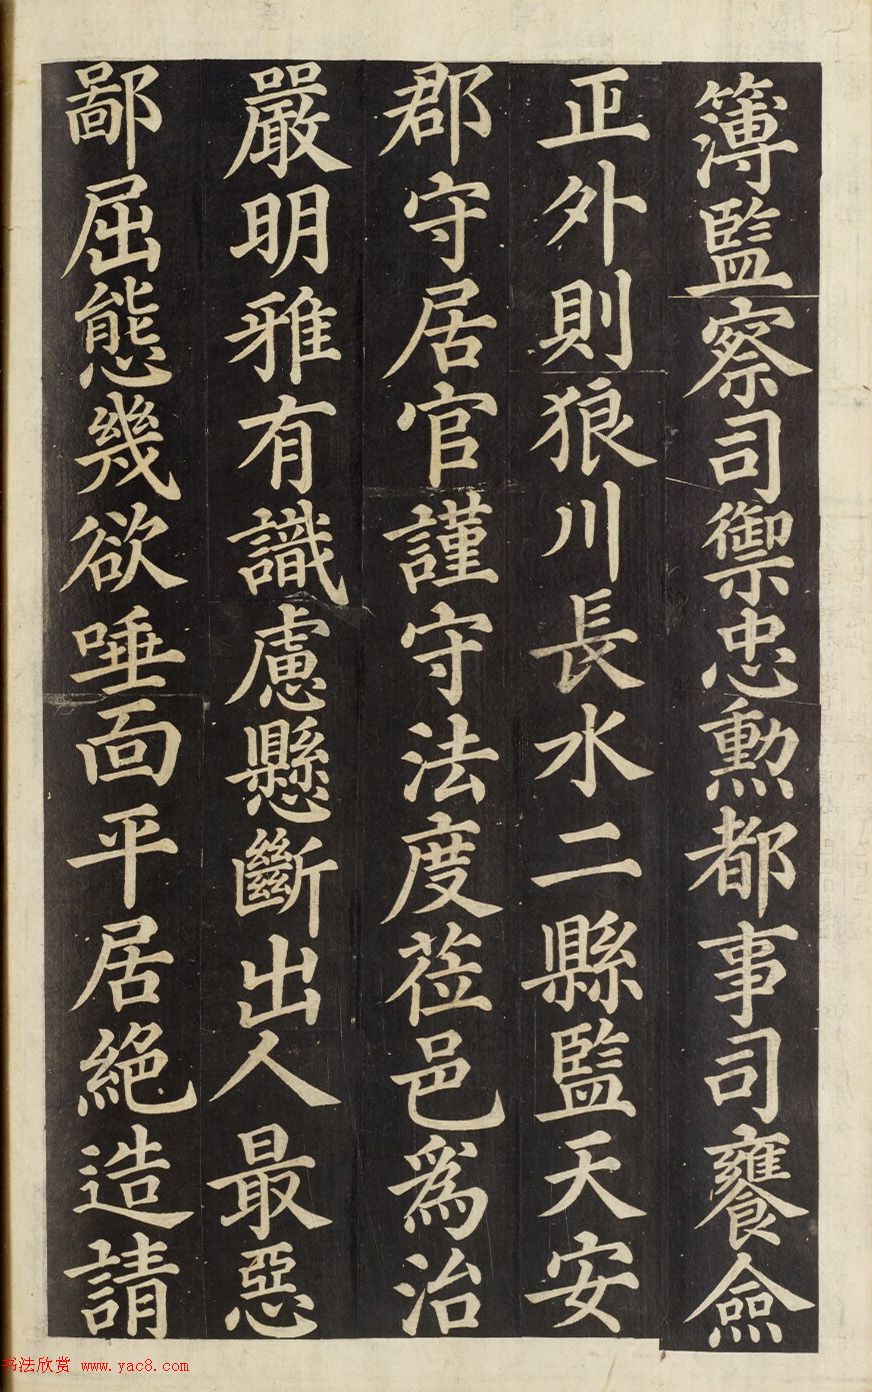 簿監察司御忠勲都事司饔僉
正外則狼川長水二縣監天安
郡守居官謹守法度莅邑爲治
嚴明雅有識慮懸斷出人最惡
鄙屈態幾欲唾面平居絕造請
书法欣赏 www.yac8.com